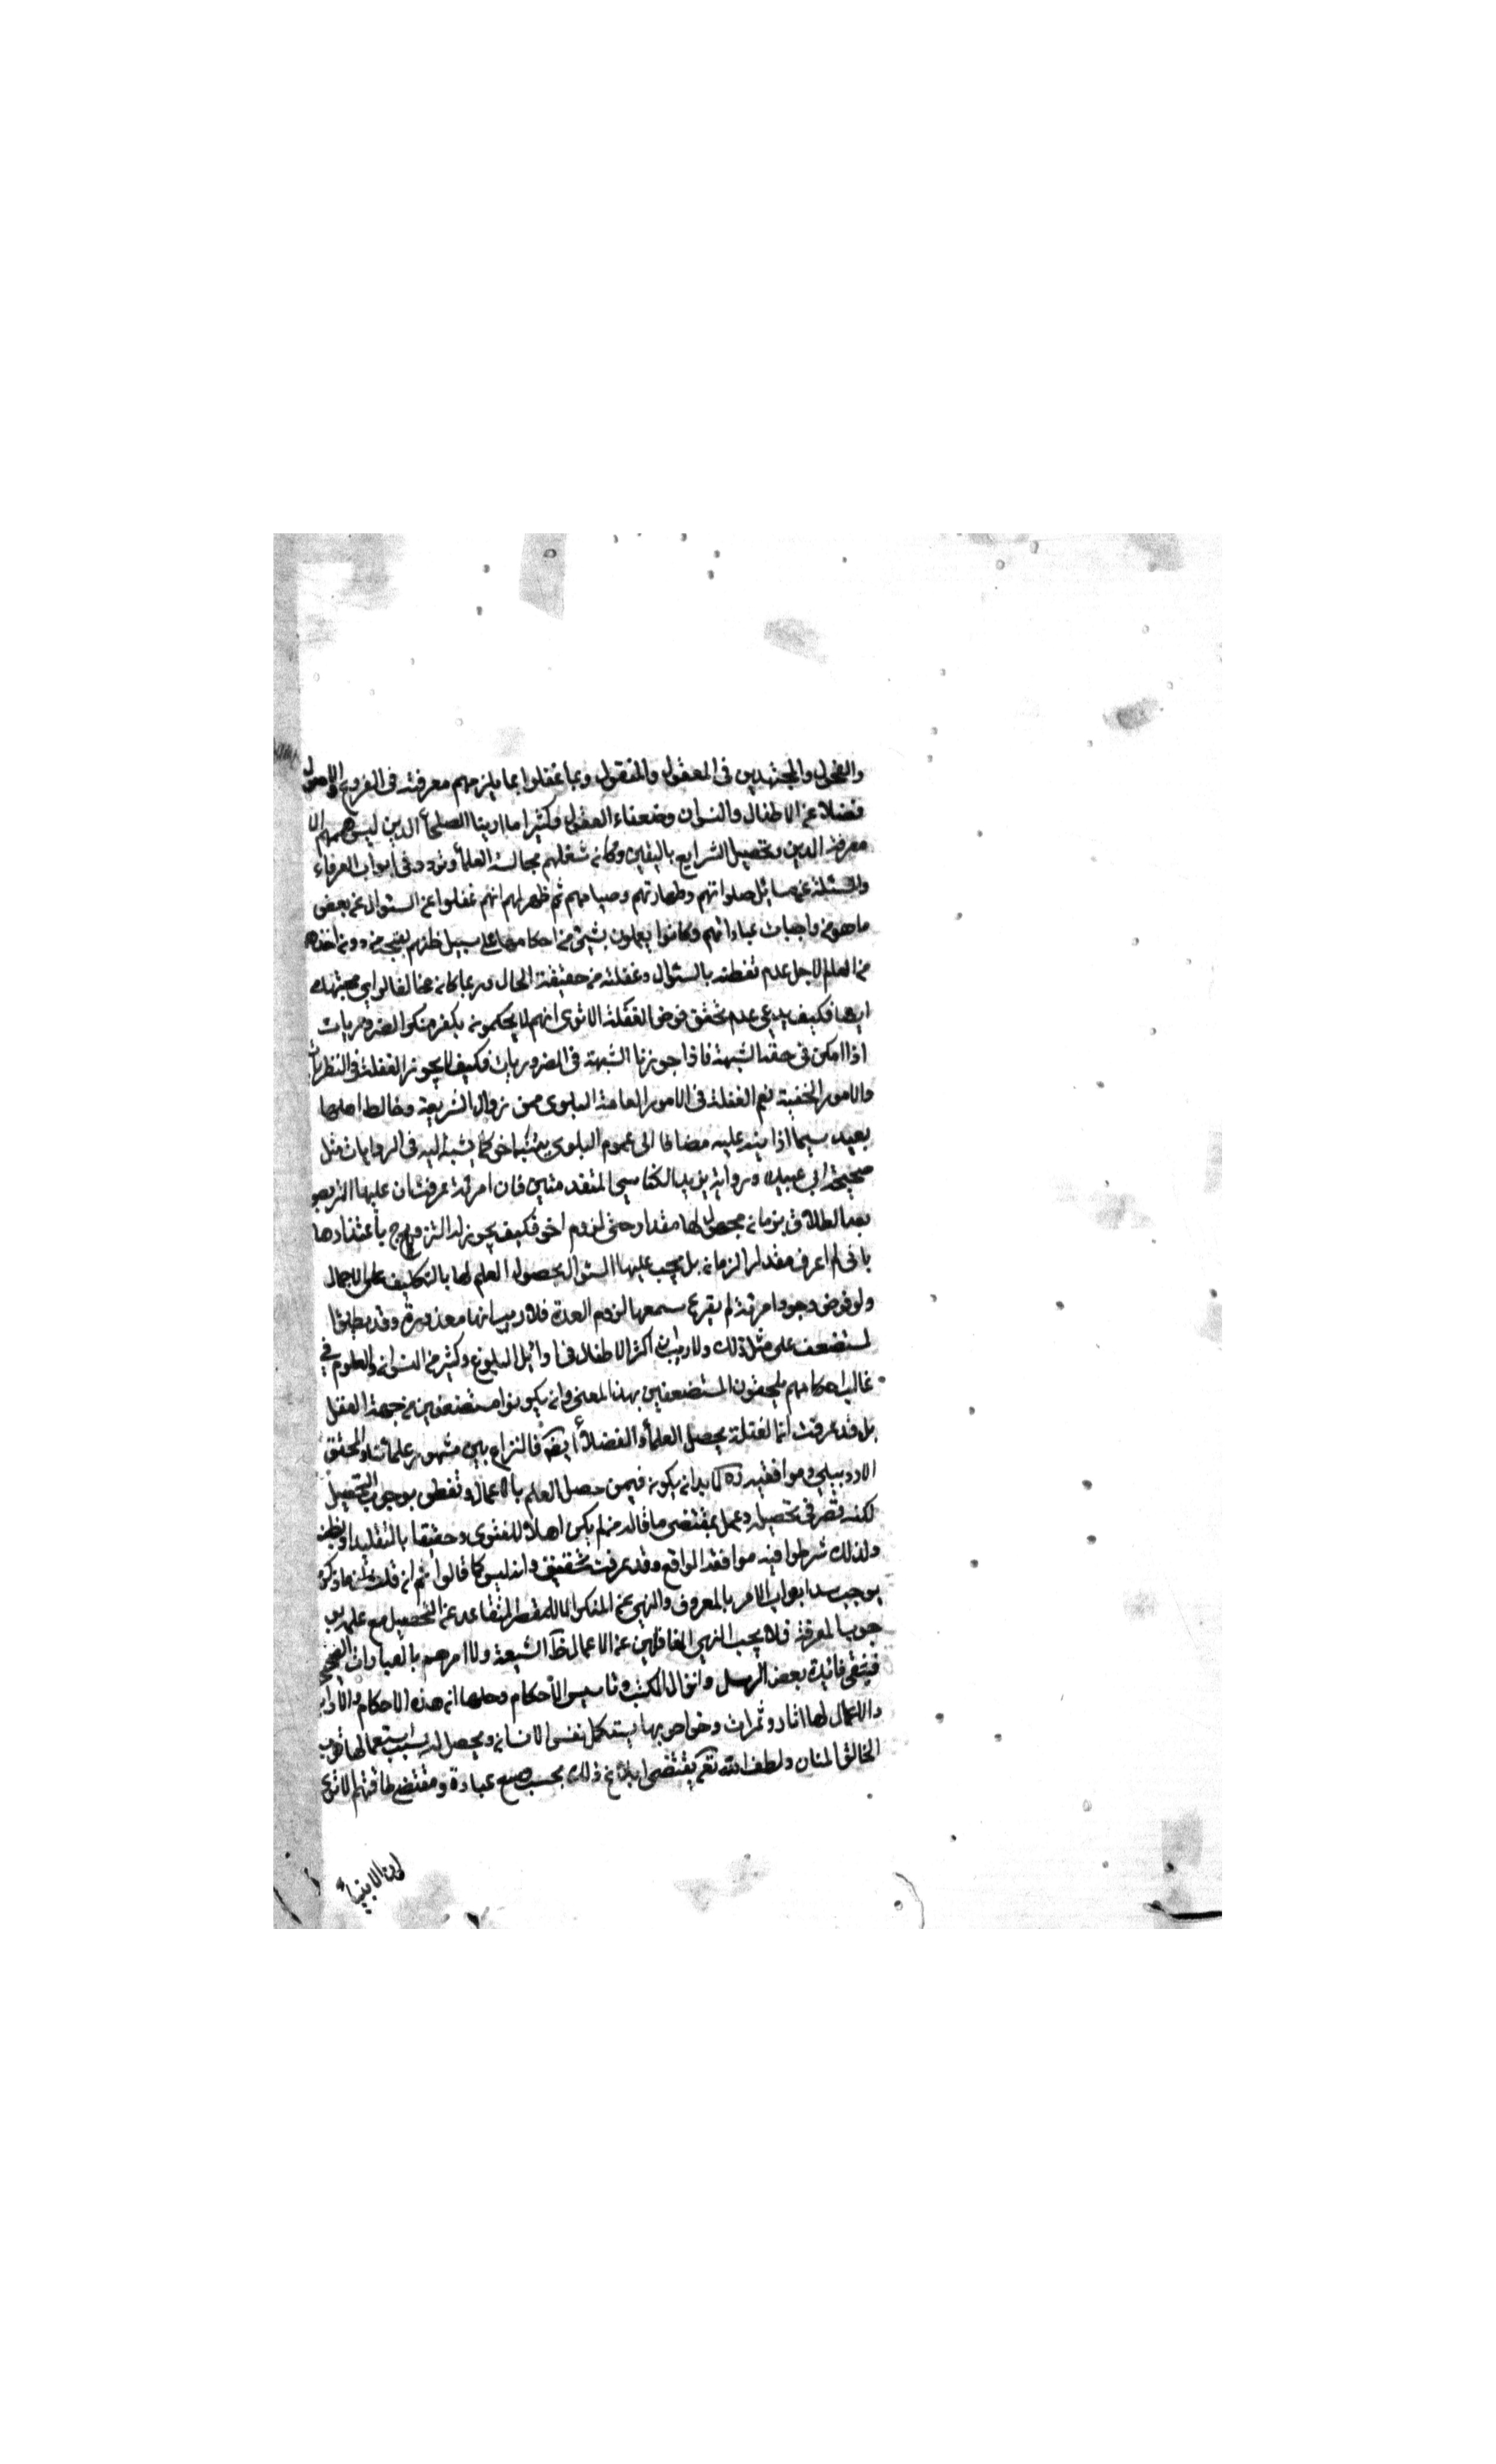 والفحول والمجتهدين فى المعقول والمنقول وربما غفلوا عما يلزمهم معرفته فى الفروع والاصول
فضلا عن الاطفال والنسوان وضعفاء العقول وكثيرا ما راينا الصلحاء الذين ليس همهم الا
معرفة الدين وتحصيل الشرايع باليقين وكان شغلهم مجالسة العلماء وتردد فى ابواب العرفاء
والمسئلة عن مسائل صلواتهم وطهارتهم وصيامهم ثم ظهر لهم انهم غفلوا عن السئوال عن بعض
ما هو من واجبات عباداتهم وكانوا يعملون بشيئ من احكامها على سبيل ظنهم بصحته من دون اخذه
من العالم لاجل عدم تفطنه بالسئوال وغفلته من حقيقة الحال وربما كان مخالفا لراى مجتهده
ايضا فكيف يدعى عدم تحقق فرض الغفلة الا ترى انهم لا يحكمون بكفر منكر الضروريات
اذا امكن فى حقه الشبهة فاذا جوزنا الشبهة فى الضروريات فكيف لا يجوز الغفلة فى النظريات
والامور الخفية نعم الغفلة فى الامور العامة البلوى ممن زوال الشريعة وخالط اهلها
بعيد سيما اذا يزيد عليه مضافا الى عموم البلوى شيئا اخر كما يشبه اليه فى الروايات مثل
صحيحة ابى عبيدة ورواية يزيد الكناسى المتقدمتين فان امرئة عرفت ان عليها التربص
بعد الطلاق بزمان مجهول لها مقداره حتى لزوم اخر فكيف يجوز له التزويج باعتقادها
بانى لم اعرف مقدار الزمان بل يجب عليها السئوال بحصول العلم لها بالتكليف على الاجمال
ولو فرض وجود امرئة لم يقرع سمعها لزوم العدة فلا ريب انها معذورة وقد يطلق
المستضعف على مثل ذلك ولا ريب ان اكثر الاطفال فى اوائل البلوغ وكثير من النسوان والعلوم فى
غالب احكامهم ملحقون المستضعفين بهذا المعنى وان يكونوا مستضعفين من جهة العقل
بل قد عرفت ان الغفلة يحصل العلماء والفضلاء ايضا فالنزاع بين مشهور علمائنا والمحقق
الاردبيلى وموافقيه ره لا بد ان يكون فيمن حصل العلم بالاعمال وتفطن بوجوب التحصيل
لكنه قصر فى تحصيله وعمل بمقتضى ما قاله من لم يكن اهلا للفتوى وحقيقا بالتقليد او بظنه
ولذلك شرطوا فيه موافقة الواقع وقد عرفت تحقيقه وانه ليس كما قالوا ثم ان قلت ان ما ذكرت
يوجب سد ابواب الامر بالمعروف والنهى عن المنكر الا للمقصر المتقاعد عن التحصيل مع علمه بو
جوب المعرفة فلا يجب النهى الغافلين عن الاعمال الشنيعة ولا امرهم بالعبادات الصحيحة
فينتفى فائدة بعض الرسل وانزال الكتب وتاسيس الاحكام وحلها ان هذه الاحكام والاداب
والاعمال لها اثار وثمرات وخواص بها يستكمل نفس الانسان ويحصل له بسبب استعمالها قرب
الخالق المنان ولطف الله تعالى يقتضى ابلاغ ذلك بحسب وسع عباده ومقتضى طاقتهم الا ترى
ان الانبياء